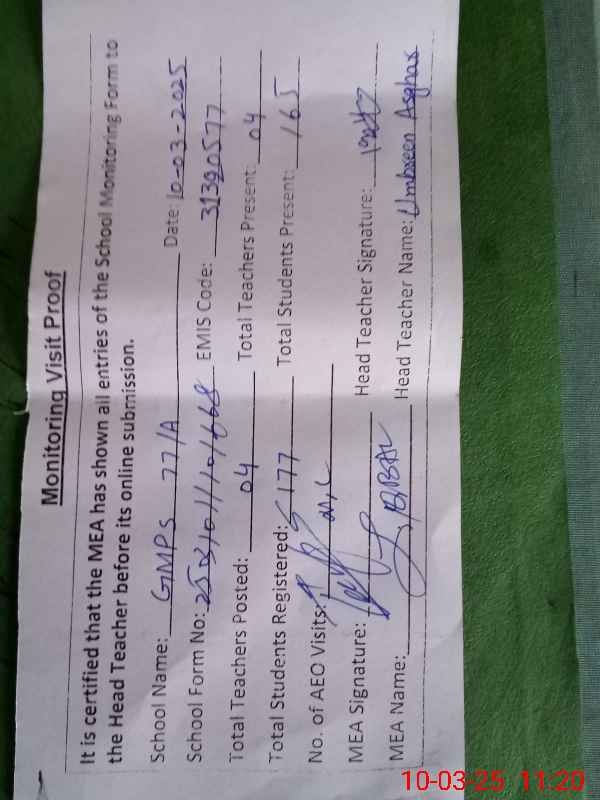 Monitoring Visit Proof
It is certified that the MEA has shown all entries of the School Monitoring Form to
the Head Teacher before its online submission.
School Name: GMPS 77/A Date: 10-03-2025
School Form No: EMIS Code: 31390577
Total Teachers Posted: 04 Total Teachers Present: 04
Total Students Registered: 177 Total Students Present: 165
No. of AEO Visits:
MEA Signature: Head Teacher Signature:
MEA Name: IQBAL Head Teacher Name: Umbreen Asghar
10-03-25 11:20